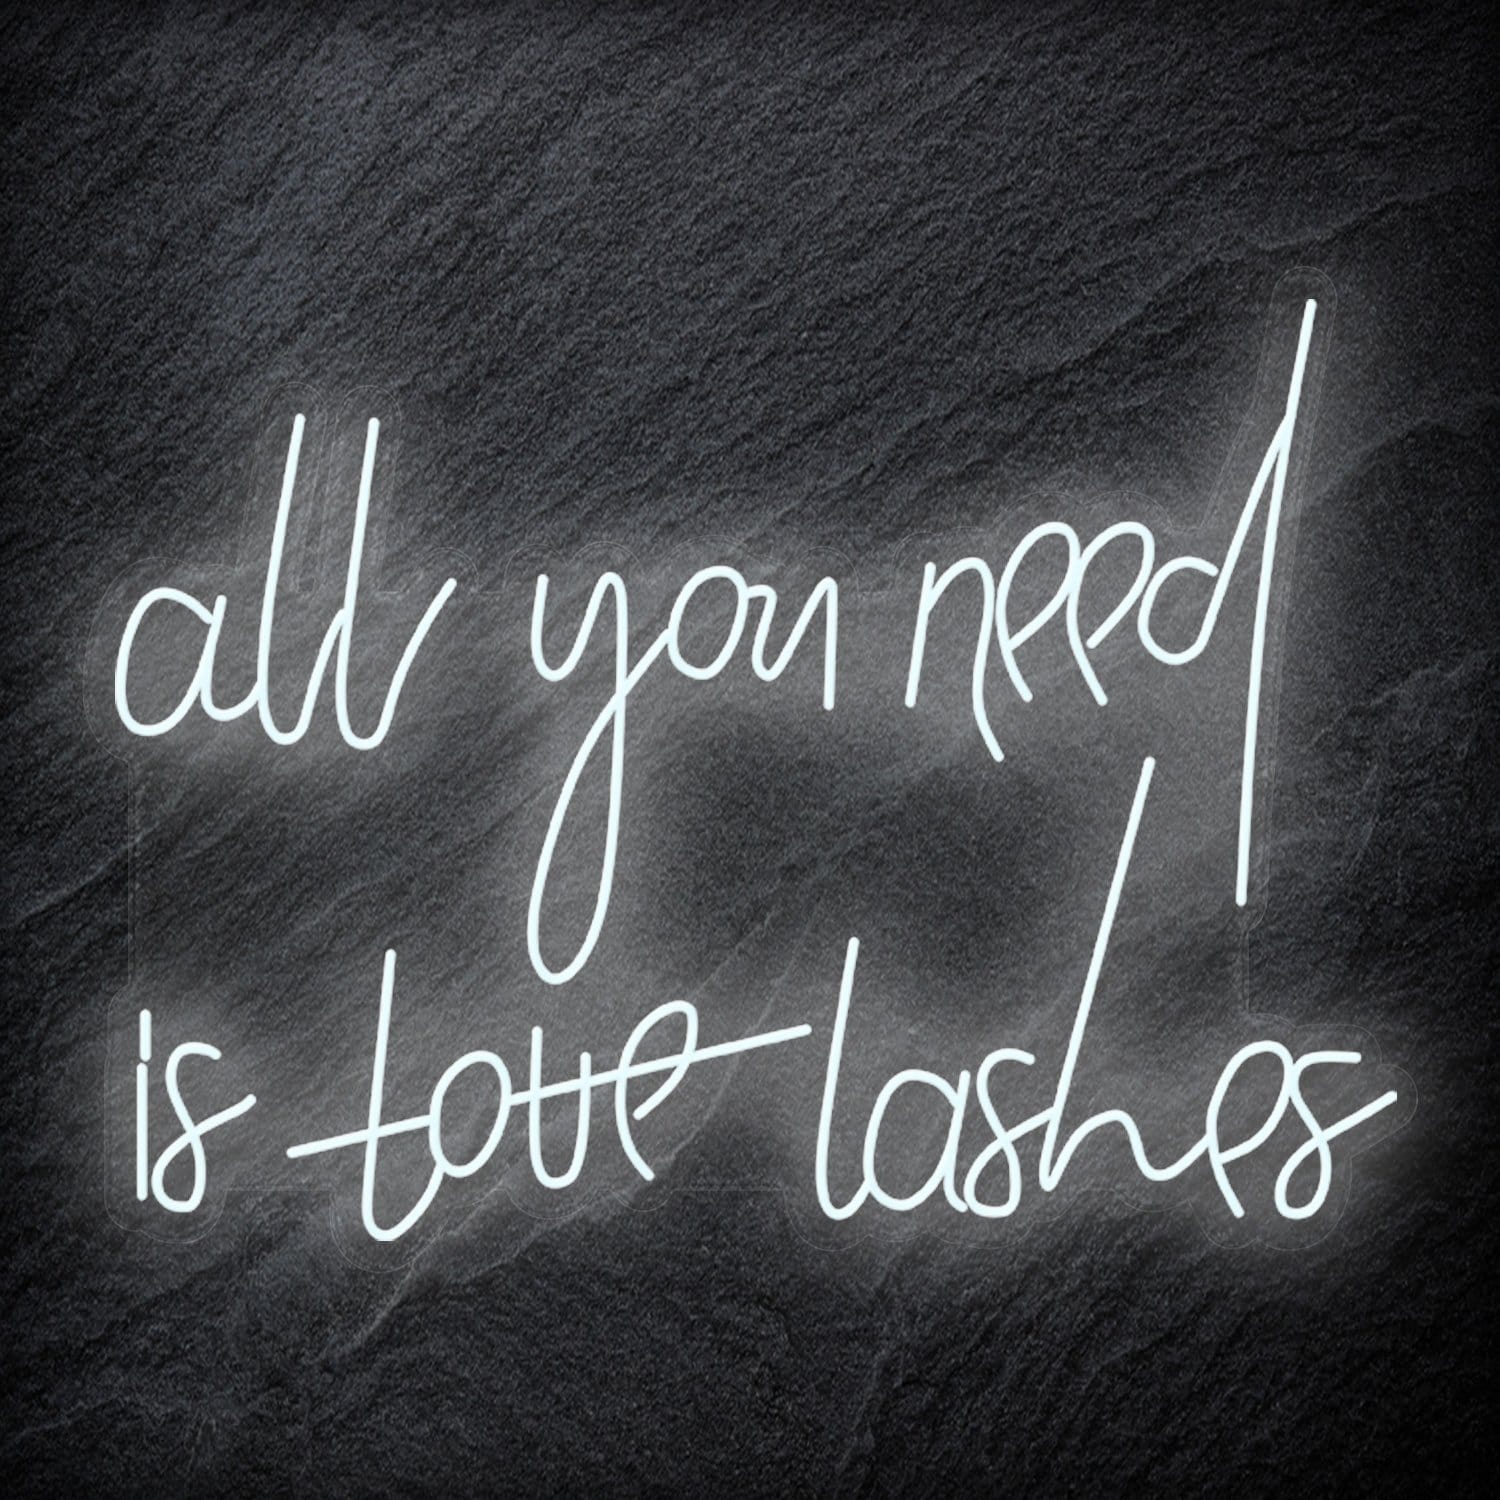 all you need
is love lashes